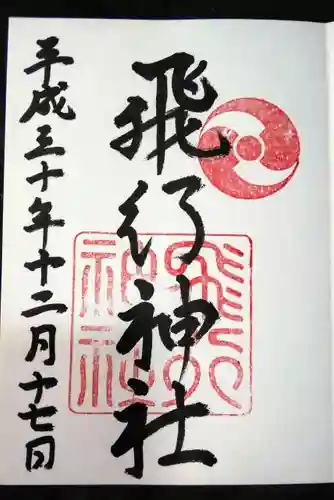 飛行神社
平成三十年十二月十七日
飛行
神社